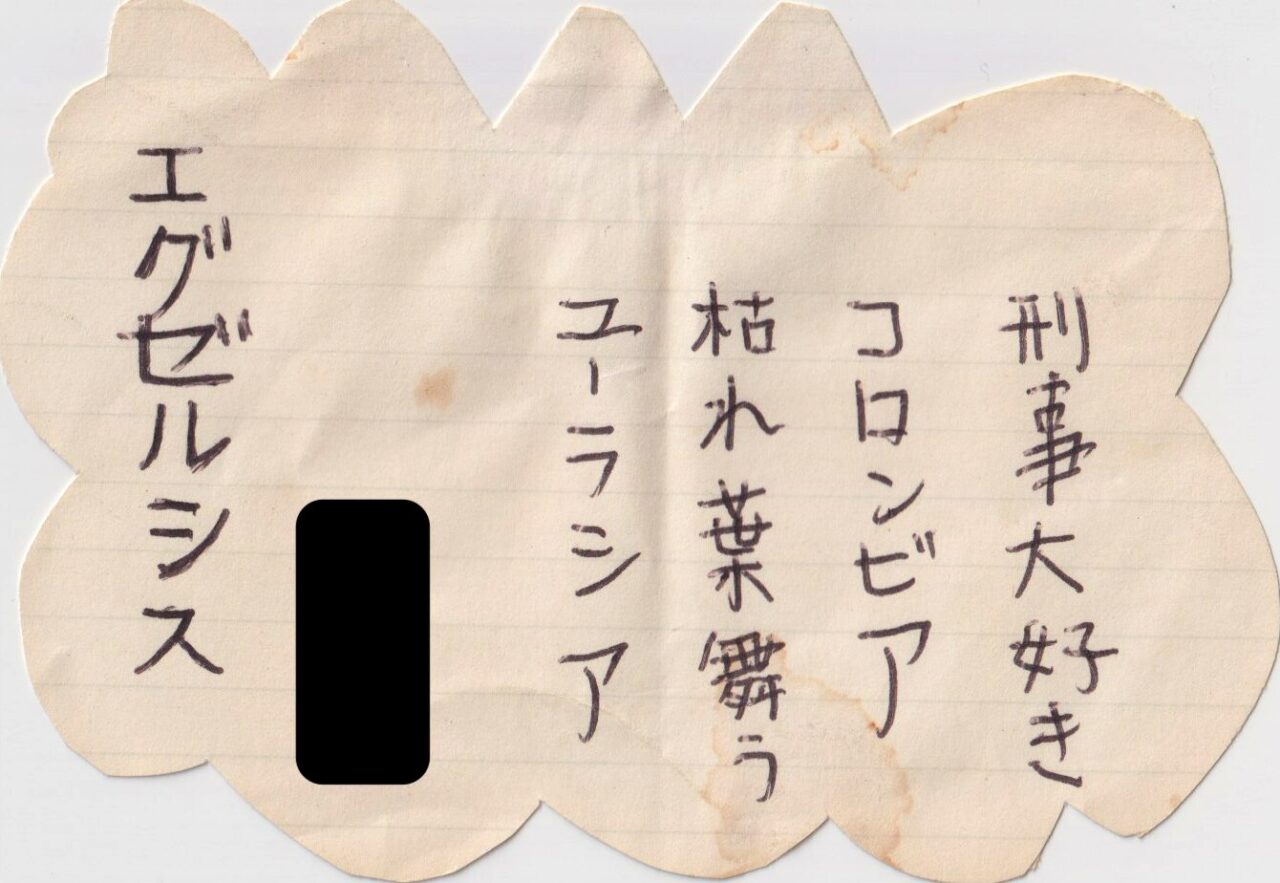 刑事大好き
コロンビア
枯れ葉舞う
ユーラシア
エグゼルシス